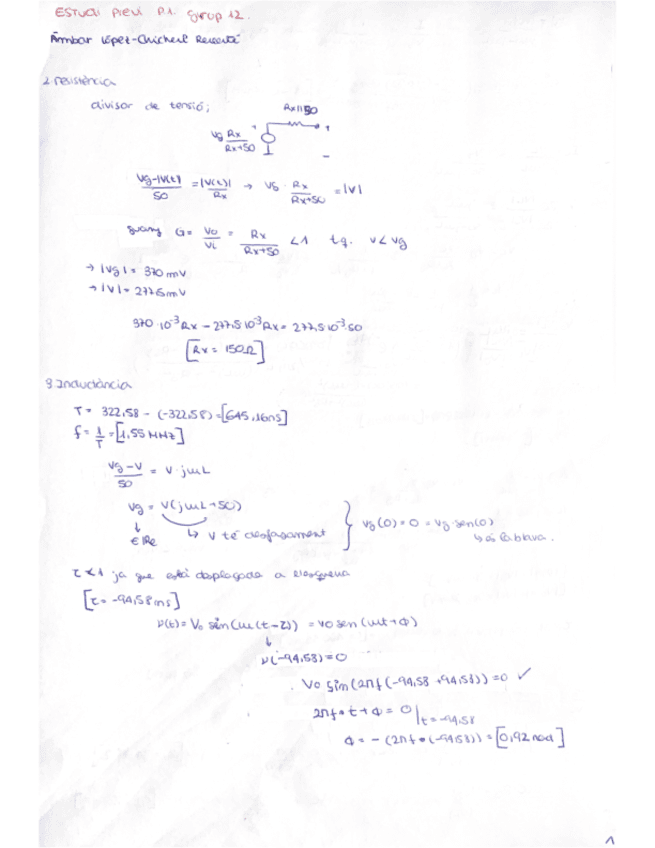 ESTUDI PREVI P.1. Grup 12.
Àmbar López-Chicheri
2. resistència
divisor de tensió;
Rx||50
Vg Rx/(Rx+50)
+
-
(Vg-|V(t)|)/50 = |V(t)|/Rx → Vg · Rx/(Rx+50) = |V|
guany G = Vo/Vi = Rx/(Rx+50) < 1 tq. V < Vg
→ |Vg| = 370 mV
→ |V| = 277,5 mV
370·10⁻³Rx - 277,5·10⁻³Rx = 277,5·10⁻³·50
[Rx = 150Ω]
3. Inductància
T = 322,58 - (-322,58) = [645,16ns]
f = 1/T = [1,55 MHz]
(Vg-V)/50 = V·jωL
Vg = V(jωL+50)
↓
∈ IRe
↳ V té desfasament
} Vg(0) = 0 = Vg·sen(0)
↳ és la blava.
τ < 1 ja que està desplaçada a l'esquerra
[τ = -94,58 ns]
v(t) = Vo sin(ω(t-τ)) = Vo sen(ωt+Φ)
↓
v(-94,58) = 0
Vo sin(2πf(-94,58+94,58)) = 0 ✓
2πf·t+Φ = 0 |t=-94,58
Φ = -(2πf·(-94,58)) = [0,92 rad]
1